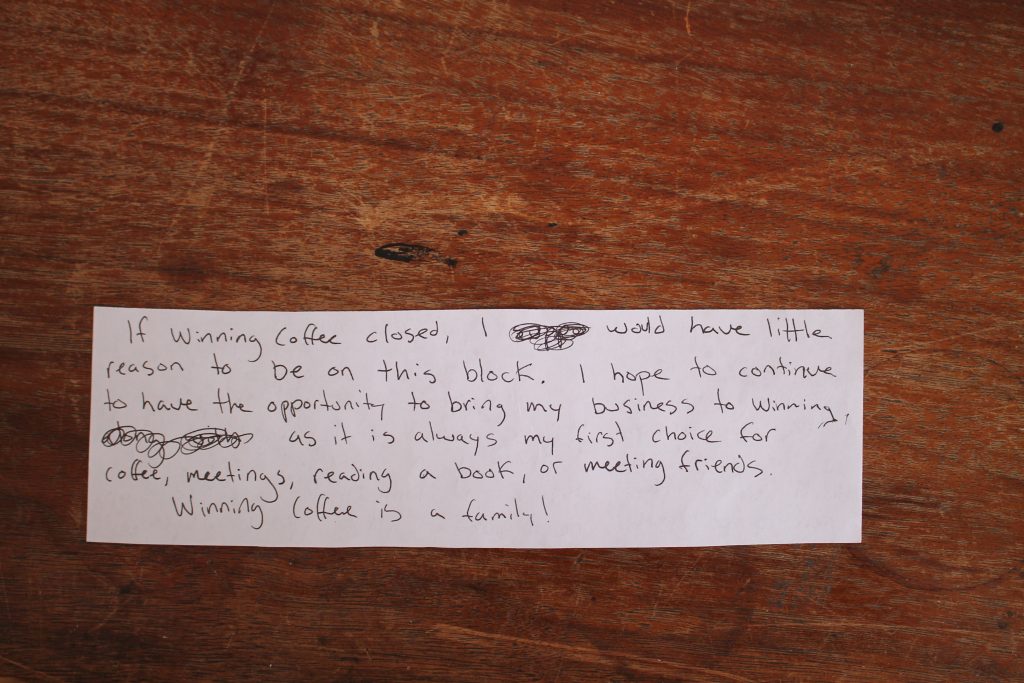 If Winning Coffee closed, I would have little
reason to be on this block. I hope to continue
to have the opportunity to bring my business to Winning,
as it is always my first choice for
coffee, meetings, reading a book, or meeting friends.
Winning Coffee is a family!